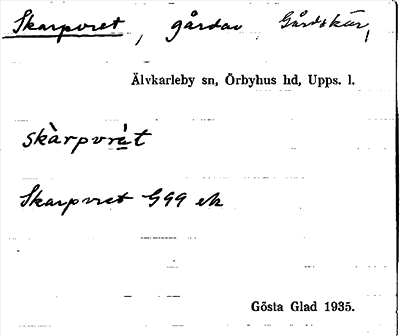 Skarpvret, gårdar, Gårdskär,
Älvkarleby sn, Örbyhus hd, Upps. l.
skàrpvrét
Skarpvret G99 ek
Gösta Glad 1935.